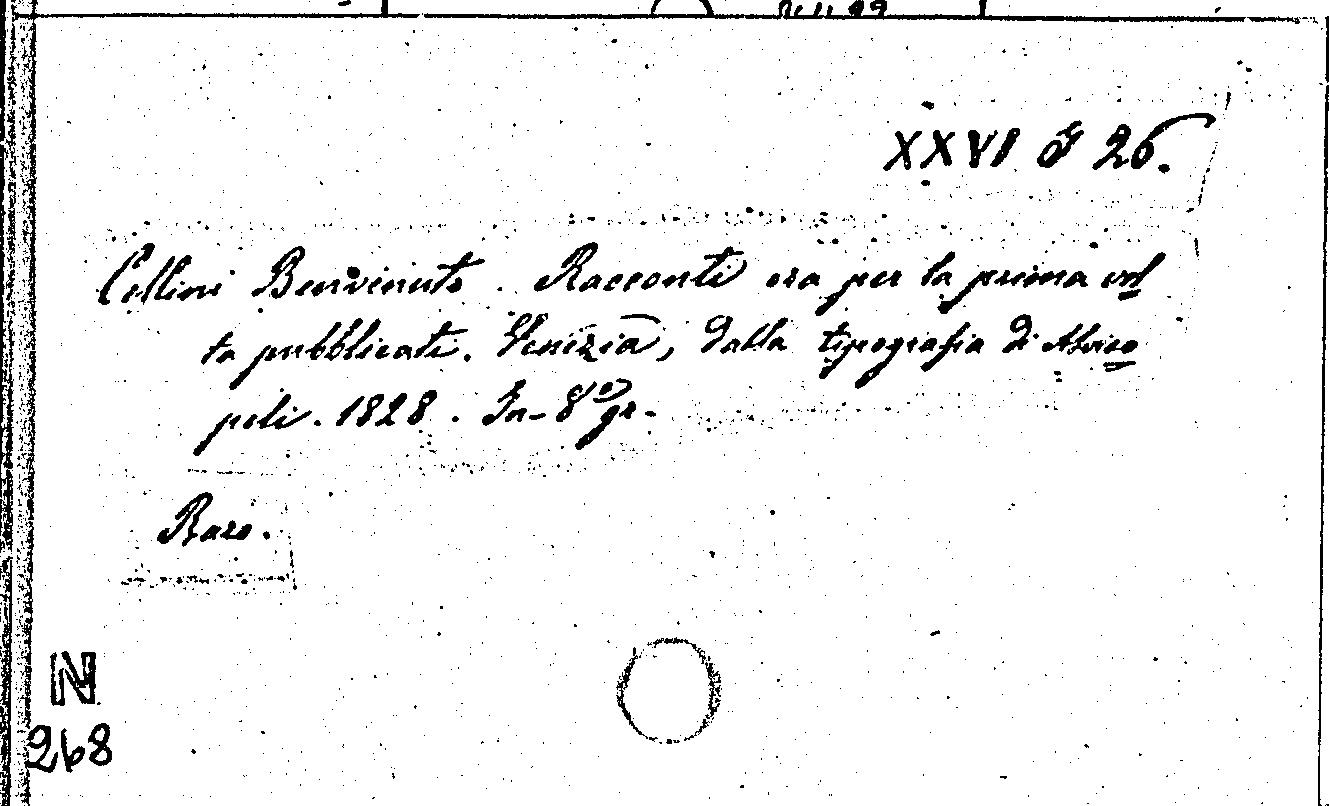 XXVI 26.
Cellini Benvenuto. Racconti ora per la prima vol
ta pubblicati. Venezia, dalla tipografia di Alviso
poli. 1828. In-8º gr.
Raro.
N
268